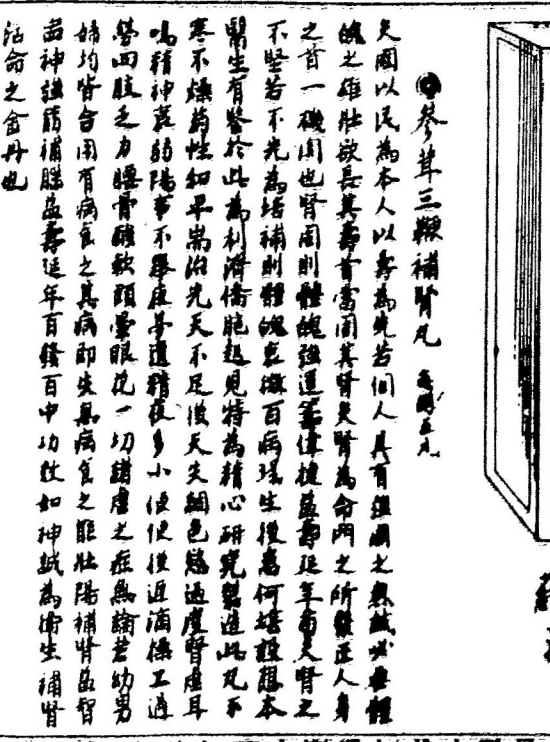 參茸三鞭補腎丸 每瓶五元
夫國以民為本人以壽為先若個人具有強國之熱誠必要體
魄之雄壯欲長其壽首當固其腎夫腎為命門之所繫正人身
之首一礎固也腎固則體魄強運籌偉捷益壽延年而夫腎之
不堅若不先為培補則體魄衰微百病環生後為何堪設想本
醫生有鑒於此為利濟僑胞起見特為精心研究製造此丸不
寒不燥葯性和平耑治先天不足後天失綱色慾過度腎虛耳
鳴精神衰弱陽事不舉夜夢遺精夜多小便便後遲滴操工過
勞四肢乏力腰骨酸軟頭暈眼花一切諸虛之症無論老幼男
婦均皆合用有病食之其病即失無病食之能壯陽補腎益智
安神強筋補腦益壽延年百發百中功效如神誠為衛生補腎
活命之金丹也